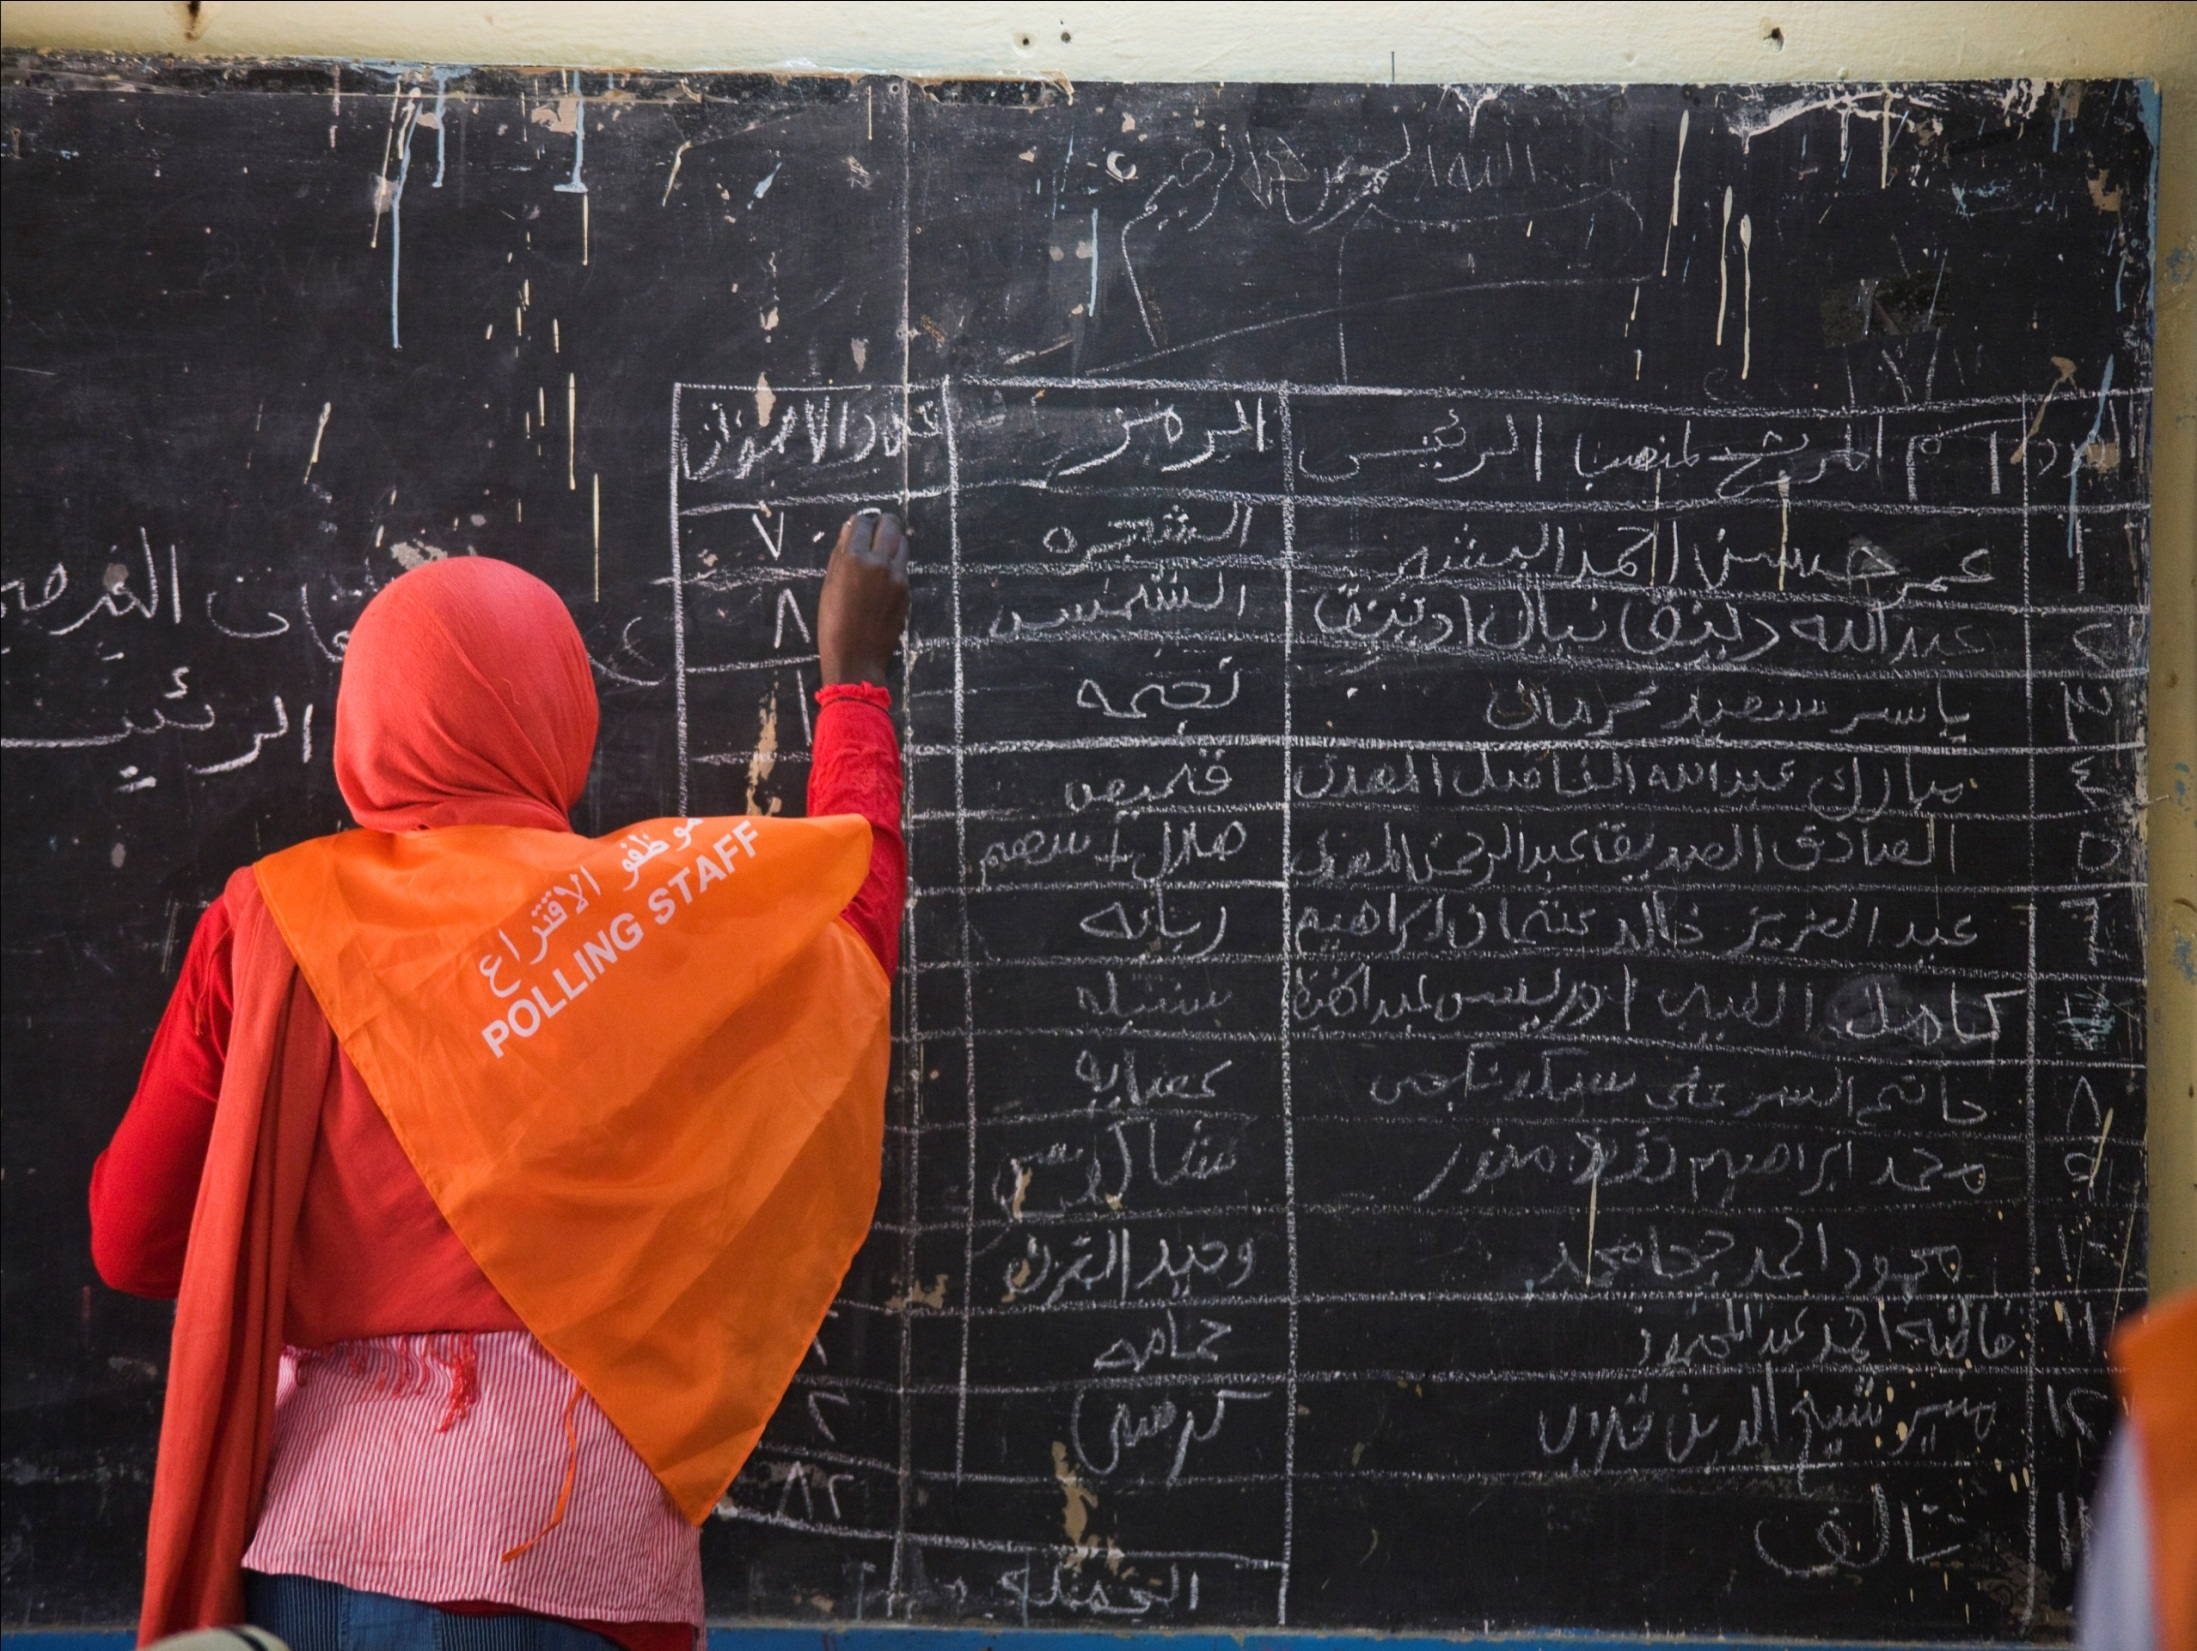 بسم الله الرحمن الرحيم
اسم المرشح لمنصب الرئيس الرمز عدد الاصوات
١ عمر حسن احمد البشير الشجره ٧٠
٢ عبدالله دينق نيال ادينق الشمس ٨
٣ ياسر سعيد عرمان نجمه ١
٤ مبارك عبدالله الفاضل المهدي قميص
٥ الصادق الصديق عبدالرحمن المهدي هلال + سهم
٦ عبد العزيز خالد عثمان ابراهيم ربابه
٧ كامل الطيب ادريس عبدالحفيظ سنبله
٨ حاتم السر علي عصايه
٩ محمد ابراهيم نقد منور
١٠ محمود احمد جحا محمد وحيد القرن
١١ فاطمه احمد عبدالمحمود حمامه ٢
١٢ منير شيخ الدين كرسي ٢
تالف ٨٢
الجمله
الرئيس
موظفو الاقتراع
POLLING STAFF